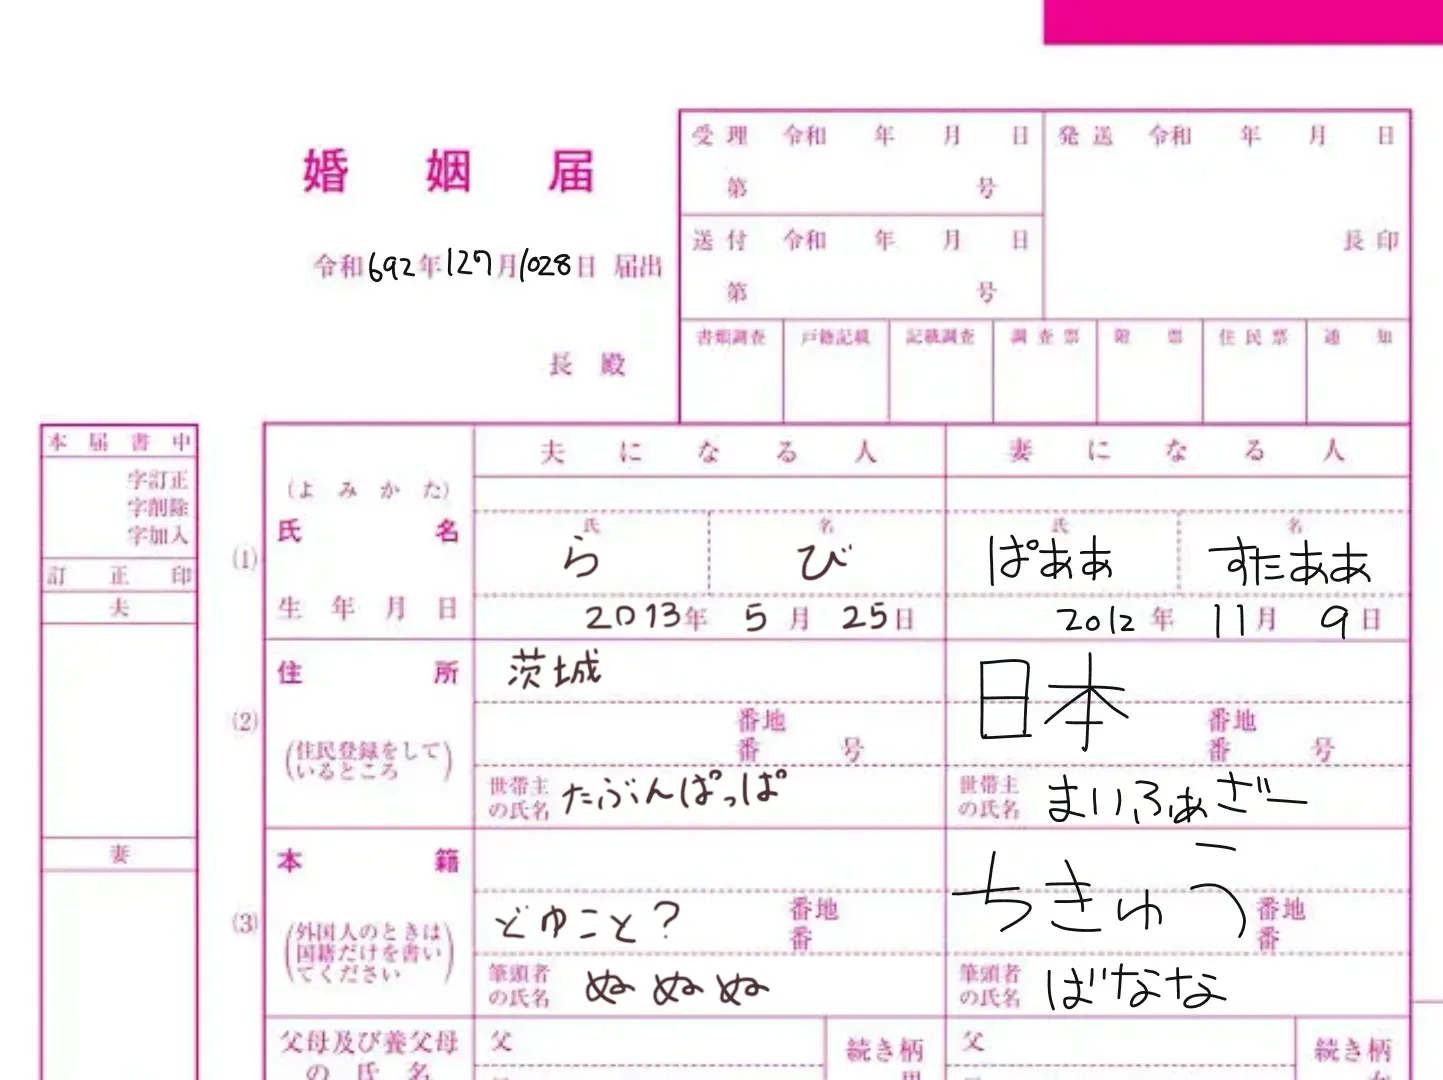 婚姻届
令和692年127月1028日 届出
長 殿
受理 令和 年 月 日
第 号
送付 令和 年 月 日
第 号
発送 令和 年 月 日
長印
書類調査 戸籍記載 記載調査 調査票 附票 住民票 通知
本届書中
字訂正
字削除
字加入
訂正印
夫
妻
夫になる人 妻になる人
(よみかた)
(1)
氏名
氏 名 氏 名
ら び ぱああ すたああ
生年月日
2013年 5月 25日 2012年 11月 9日
(2)
住所
(住民登録をして
いるところ)
茨城 日本
番地
番 号
番地
番 号
世帯主
の氏名
たぶんぱっぱ
世帯主
の氏名
まいふぁざー
(3)
本籍
(外国人のときは
国籍だけを書い
てください)
どゆこと?
番地
番
ちきゅう
番地
番
筆頭者
の氏名
ぬぬぬ
筆頭者
の氏名
ばなな
父母及び養父母
の氏名
父
続き柄
父
続き柄